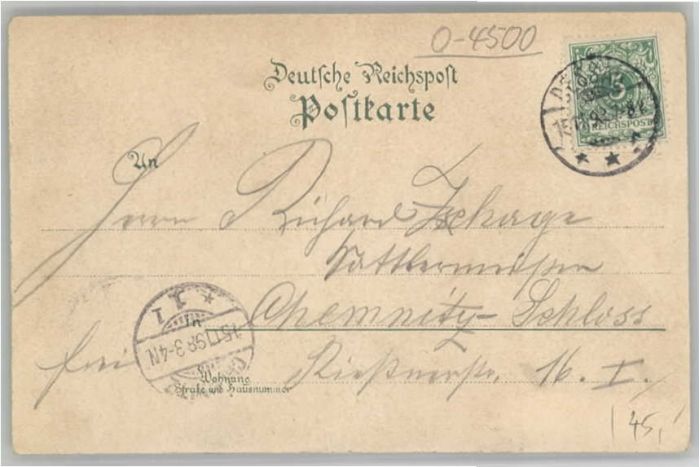 O-4500
Deutsche Reichspost
Postkarte
5
REICHSPOST
An
Herrn Richard Zschage
Sattlermeister
Chemnitz-Schloss
frei
15.11.98.3-4N
Wohnung
Straße und Hausnummer
16. I.
45,-